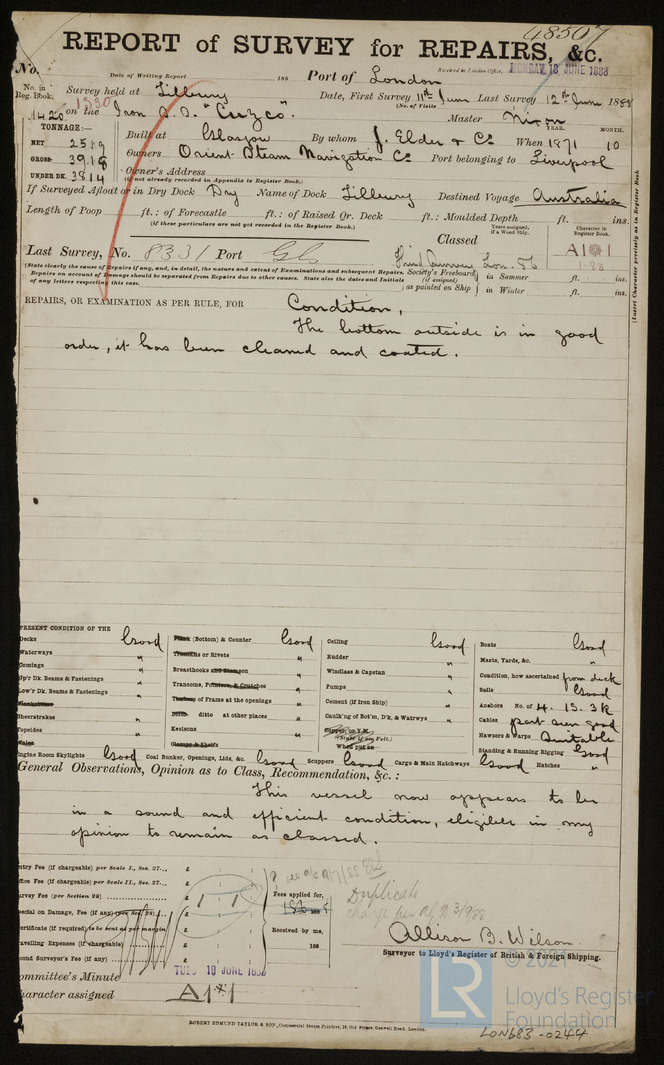 48507
REPORT of SURVEY for REPAIRS, &c.
No.
Date of Writing Report 188 Port of London Received in London Office, MONDAY 18 JUNE 1888
No. in Reg. Book. Survey held at Tilbury Date, First Survey 11th June Last Survey 12th June 1888
(No. of Visits )
1420 on the Iron S.S. "Cuzco". Master Nixon
TONNAGE:— YEAR. MONTH.
NET 2519 Built at Glasgow By whom J. Elder & Co When 1871 10
GROSS 3918 Owners Orient Steam Navigation Co Port belonging to Liverpool
UNDER DK. 3814 Owner's Address
(if not already recorded in Appendix to Register Book.)
If Surveyed Afloat or in Dry Dock Dry Name of Dock Tilbury Destined Voyage Australia
Length of Poop ft.: of Forecastle ft.: of Raised Qr. Deck ft.: Moulded Depth ft. ins.
(if these particulars are not yet recorded in the Register Book.)
Years assigned, if a Wood Ship.
Character in Register Book.
Classed
Last Survey, No. 8331 Port Gls Lon. 86 A1
1.88
(State clearly the cause of Repairs if any, and, in detail, the nature and extent of Examinations and subsequent Repairs. Repairs on account of Damage should be separated from Repairs due to other causes. State also the dates and Initials of any letters respecting this case.
Society's Freeboard (if assigned) as painted on Ship in Summer ft. ins.
in Winter ft. ins.
(Insert Character precisely as in Register Book
REPAIRS, OR EXAMINATION AS PER RULE, FOR Condition,
The bottom outside is in good
order, it has been cleaned and coated.
PRESENT CONDITION OF THE
Decks Good
Waterways "
Comings "
Up'r Dk. Beams & Fastenings "
Low'r Dk. Beams & Fastenings "
Planksheers
Sheerstrakes "
Topsides "
Wales
Plank (Bottom) & Counter Good
Treenails or Rivets "
Breasthooks and Stemson "
Transoms, Pointers, & Crutches "
Timbers of Frame at the openings "
Ditto ditto at other places "
Keelsons "
Clamps & Shelfs
Ceiling Good
Rudder "
Windlass & Capstan "
Pumps "
Cement (if Iron Ship) "
Caulk'ng of Bot'm, D'k, & Watrwys "
Copper, or Y.M.
(State if on Felt.)
When put on
Boats Good
Masts, Yards, &c. "
Condition, how ascertained from deck
Sails Good
Anchors No. of 4. 1S. 3K
Cables part seen good
Hawsers & Warps Suitable
Standing & Running Rigging Good
Engine Room Skylights Good Coal Bunker, Openings, Lids, &c. Good Scuppers Good Cargo & Main Hatchways Good Hatches "
General Observations, Opinion as to Class, Recommendation, &c. :
This vessel now appears to be
in a sound and efficient condition, eligible in my
opinion to remain as classed.
Entry Fee (if chargeable) per Scale I., Sec. 27... £ : :
Office Fee (if chargeable) per Scale II., Sec. 27... £ : :
Survey Fee (per Section 28) £ 1 : 1 :
Special on Damage, Fee (if any) (per Sec. 28) £ : :
Certificate (if required) to be sent as per margin £ : :
Travelling Expenses (if chargeable) £ : :
Second Surveyor's Fee (if any) £ : :
Fees applied for,
18/6 188
Received by me,
188
Duplicate
Allison B. Wilson
Surveyor to Lloyd's Register of British & Foreign Shipping.
Committee's Minute TUES 19 JUNE 1888
Character assigned A1
ROBERT EDMUND TAYLOR & SON, Commercial Steam Printers, 19, Old Street, Goswell Road, London.
© 2021
LR
Lloyd's Register
Foundation
LON683-0244